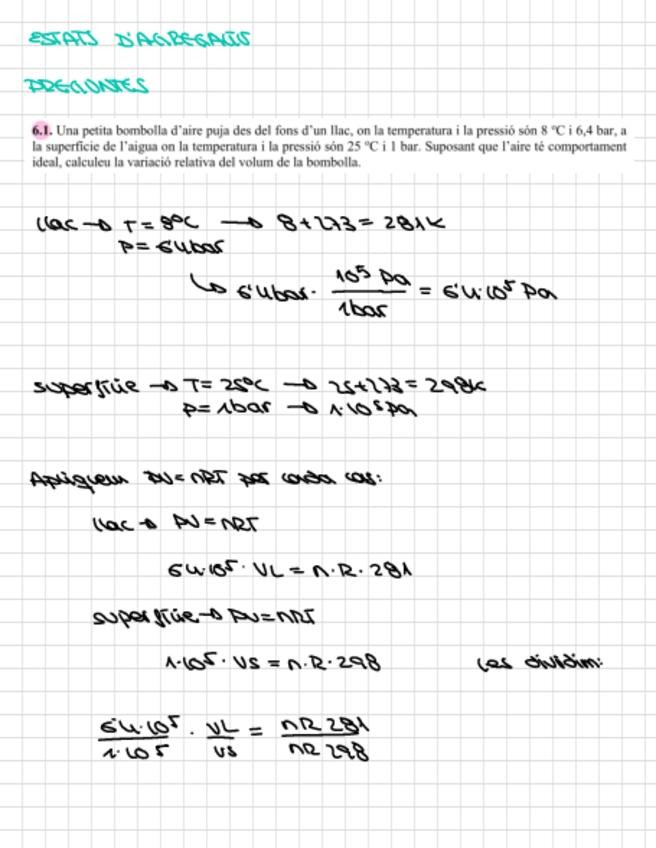 ESTATS D'AGREGACIÓ
PREGUNTES
6.1. Una petita bombolla d'aire puja des del fons d'un llac, on la temperatura i la pressió són 8 ºC i 6,4 bar, a
la superfície de l'aigua on la temperatura i la pressió són 25 ºC i 1 bar. Suposant que l'aire té comportament
ideal, calculeu la variació relativa del volum de la bombolla.
llac → T = 8ºC → 8+273 = 281K
P = 6'4bar
↳ 6'4bar · 10⁵ Pa / 1bar = 6'4·10⁵ Pa
superfície → T = 25ºC → 25+273 = 298K
P = 1bar → 1·10⁵ Pa
Apliquem PV = nRT per cada cas:
llac → PV = nRT
6'4·10⁵ · VL = n·R·281
superfície → PV = nRT
1·10⁵ · VS = n·R·298 Les dividim:
6'4·10⁵ / 1·10⁵ · VL / VS = nR 281 / nR 298